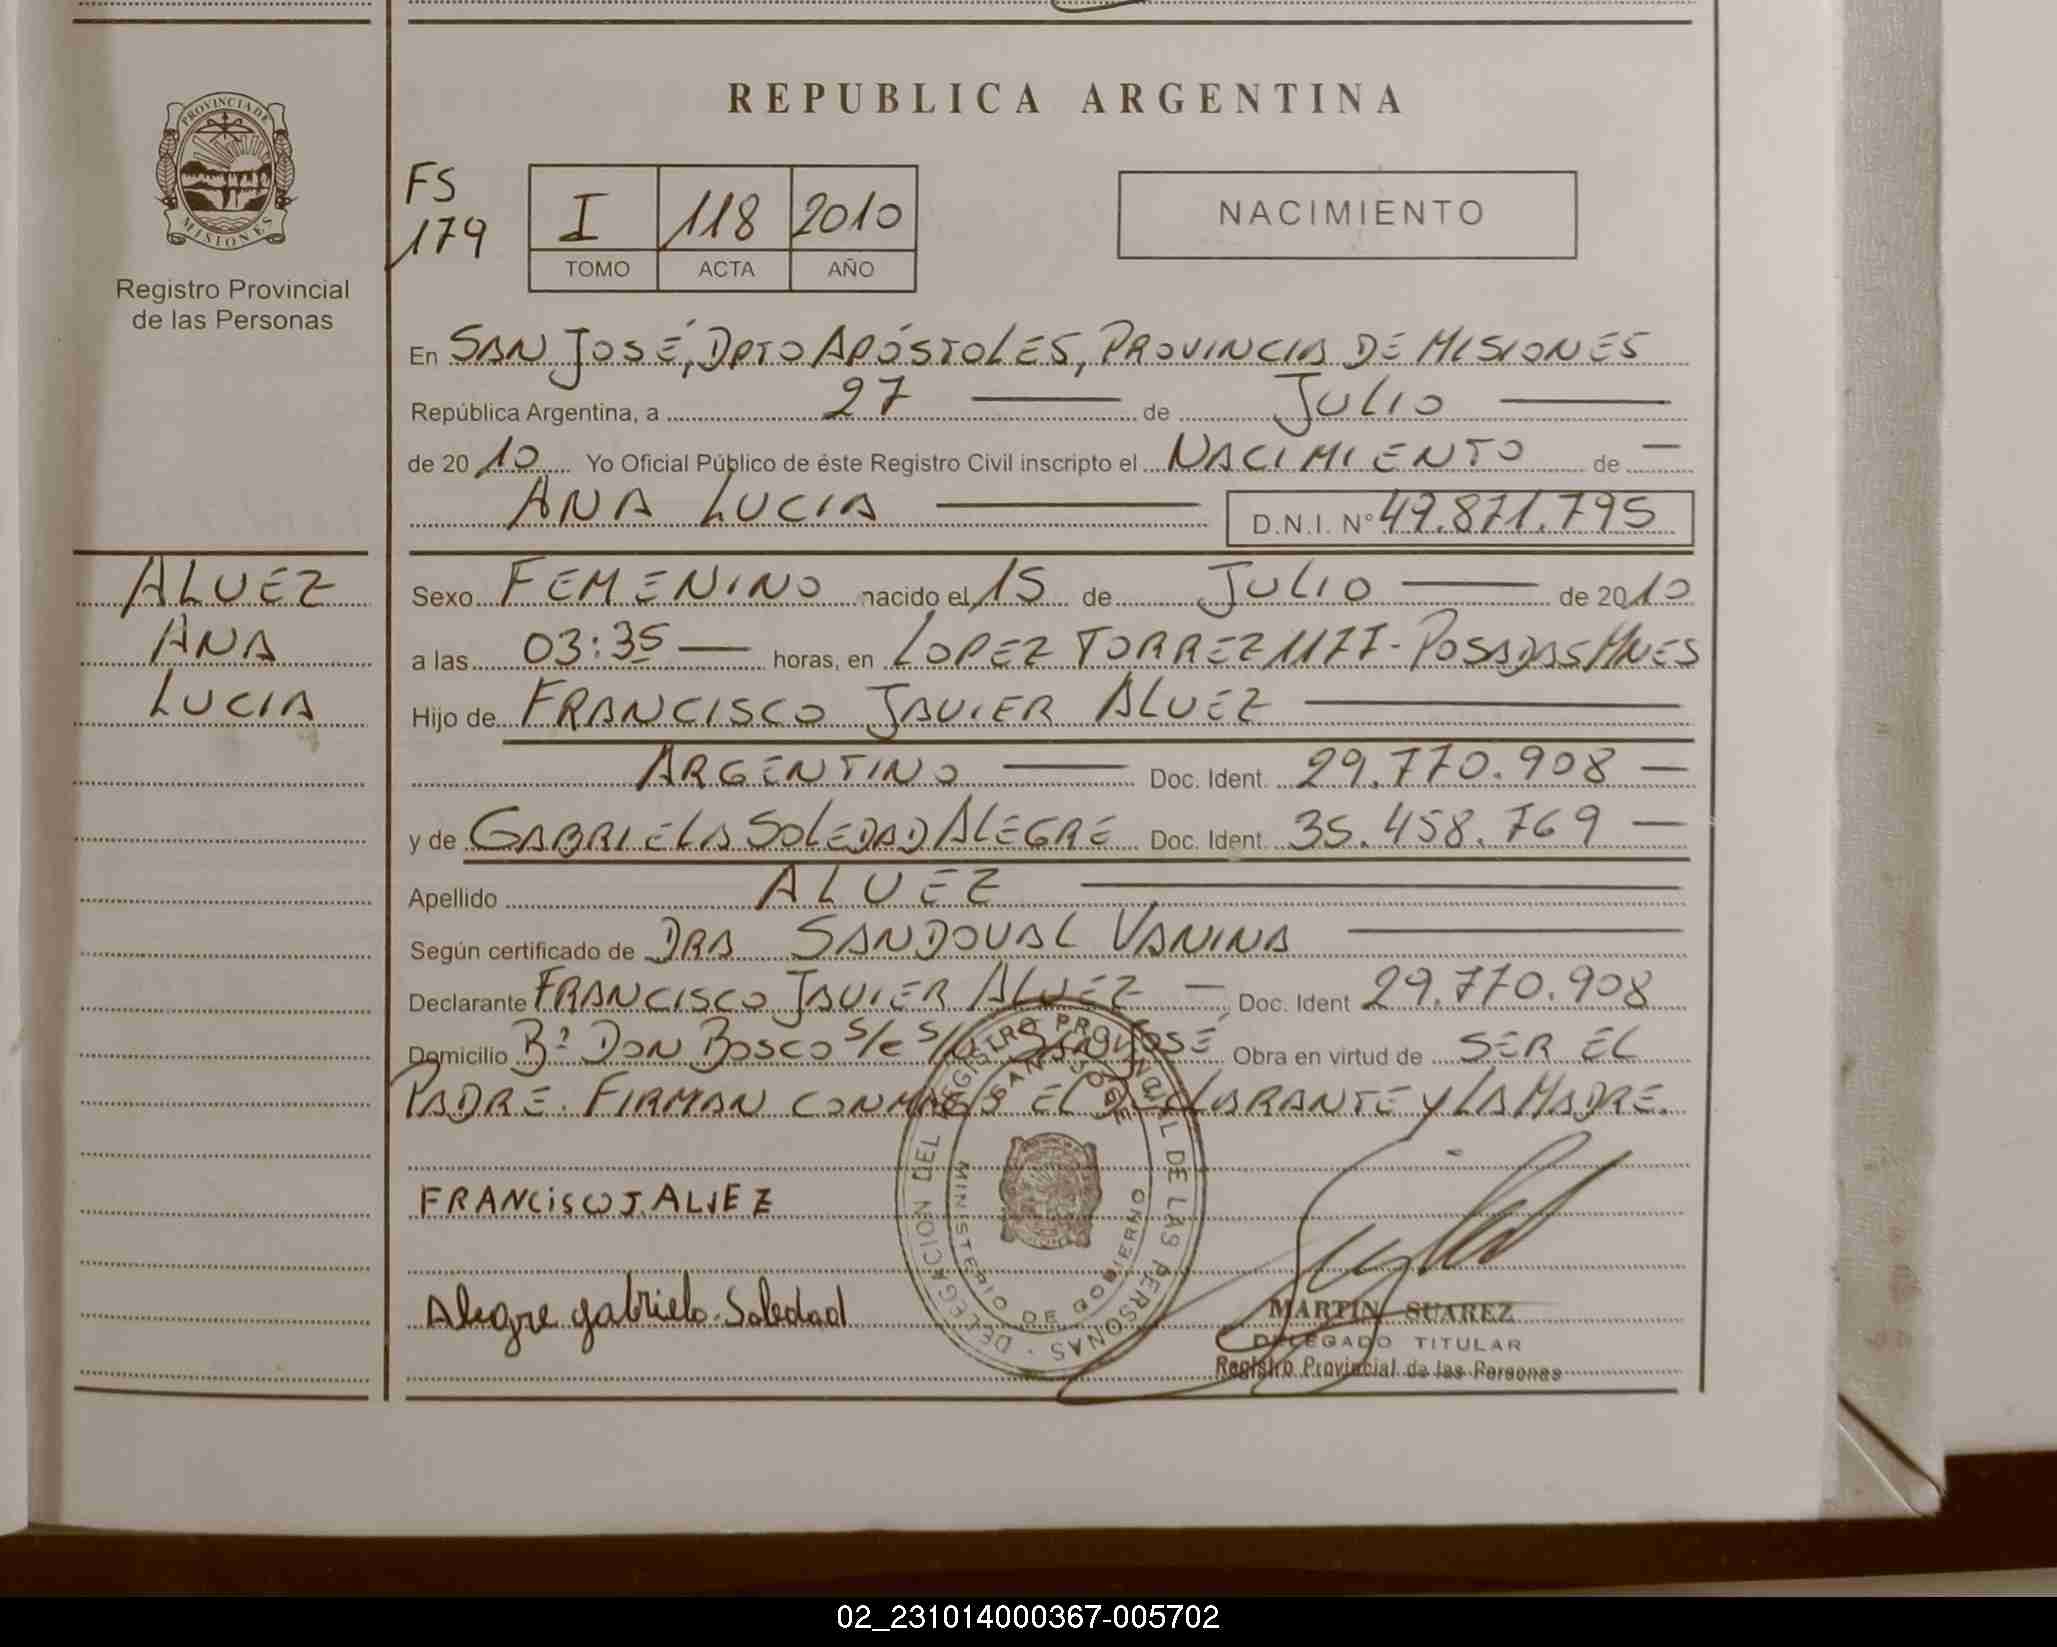 REPUBLICA ARGENTINA
PROVINCIA DE
MISIONES
Registro Provincial
de las Personas
FS
179
I 118 2010
TOMO ACTA AÑO
NACIMIENTO
En SAN JOSÉ, DPTO APÓSTOLES, PROVINCIA DE MISIONES
República Argentina, a 27 de JULIO
de 2010 Yo Oficial Público de éste Registro Civil inscripto el NACIMIENTO de
ANA LUCIA D.N.I. Nº 49.871.795
ALVEZ
ANA
LUCIA
Sexo FEMENINO nacido el 15 de JULIO de 2010
a las 03:35 horas, en LOPEZ TORREZ 1177 - POSADAS MNES
Hijo de FRANCISCO JAVIER ALVEZ
ARGENTINO Doc. Ident. 29.770.908
y de GABRIELA SOLEDAD ALEGRE Doc. Ident. 35.458.769
Apellido ALVEZ
Según certificado de DRA SANDOVAL VANINA
Declarante FRANCISCO JAVIER ALVEZ Doc. Ident 29.770.908
Domicilio Bº DON BOSCO S/C S/N SAN JOSÉ Obra en virtud de SER EL
PADRE. FIRMAN CONMIGO EL DECLARANTE Y LA MADRE.
FRANCISCO J. ALVEZ
Alegre gabriela Soledad
DELEGACION DEL REGISTRO PROVINCIAL DE LAS PERSONAS
SAN JOSE
MINISTERIO DE GOBIERNO
MARTIN SUAREZ
DELEGADO TITULAR
Registro Provincial de las Personas
02_231014000367-005702